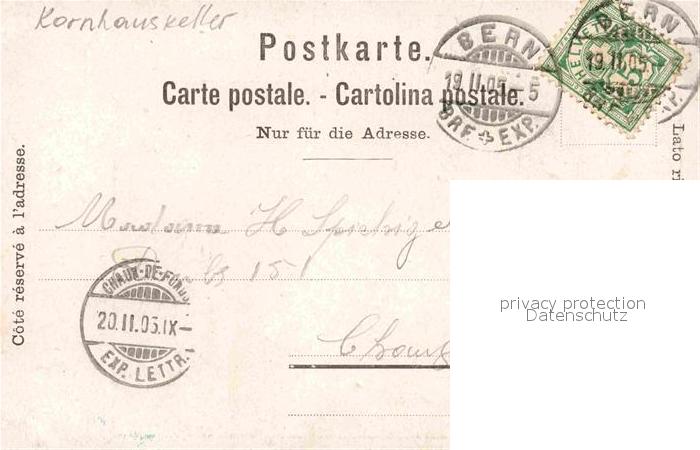 Kornhauskeller
Postkarte.
Carte postale. - Cartolina postale.
Nur für die Adresse.
BERN
19.II.05.-5
BRF. EXP.
BERN
19.II.05
XP.
HELVETIA
5
Côté réservé à l'adresse.
Lato ri
Madame H
151
CHAUX-DE-FONDS
20.II.05.IX-
EXP. LETTR.
privacy protection
Datenschutz